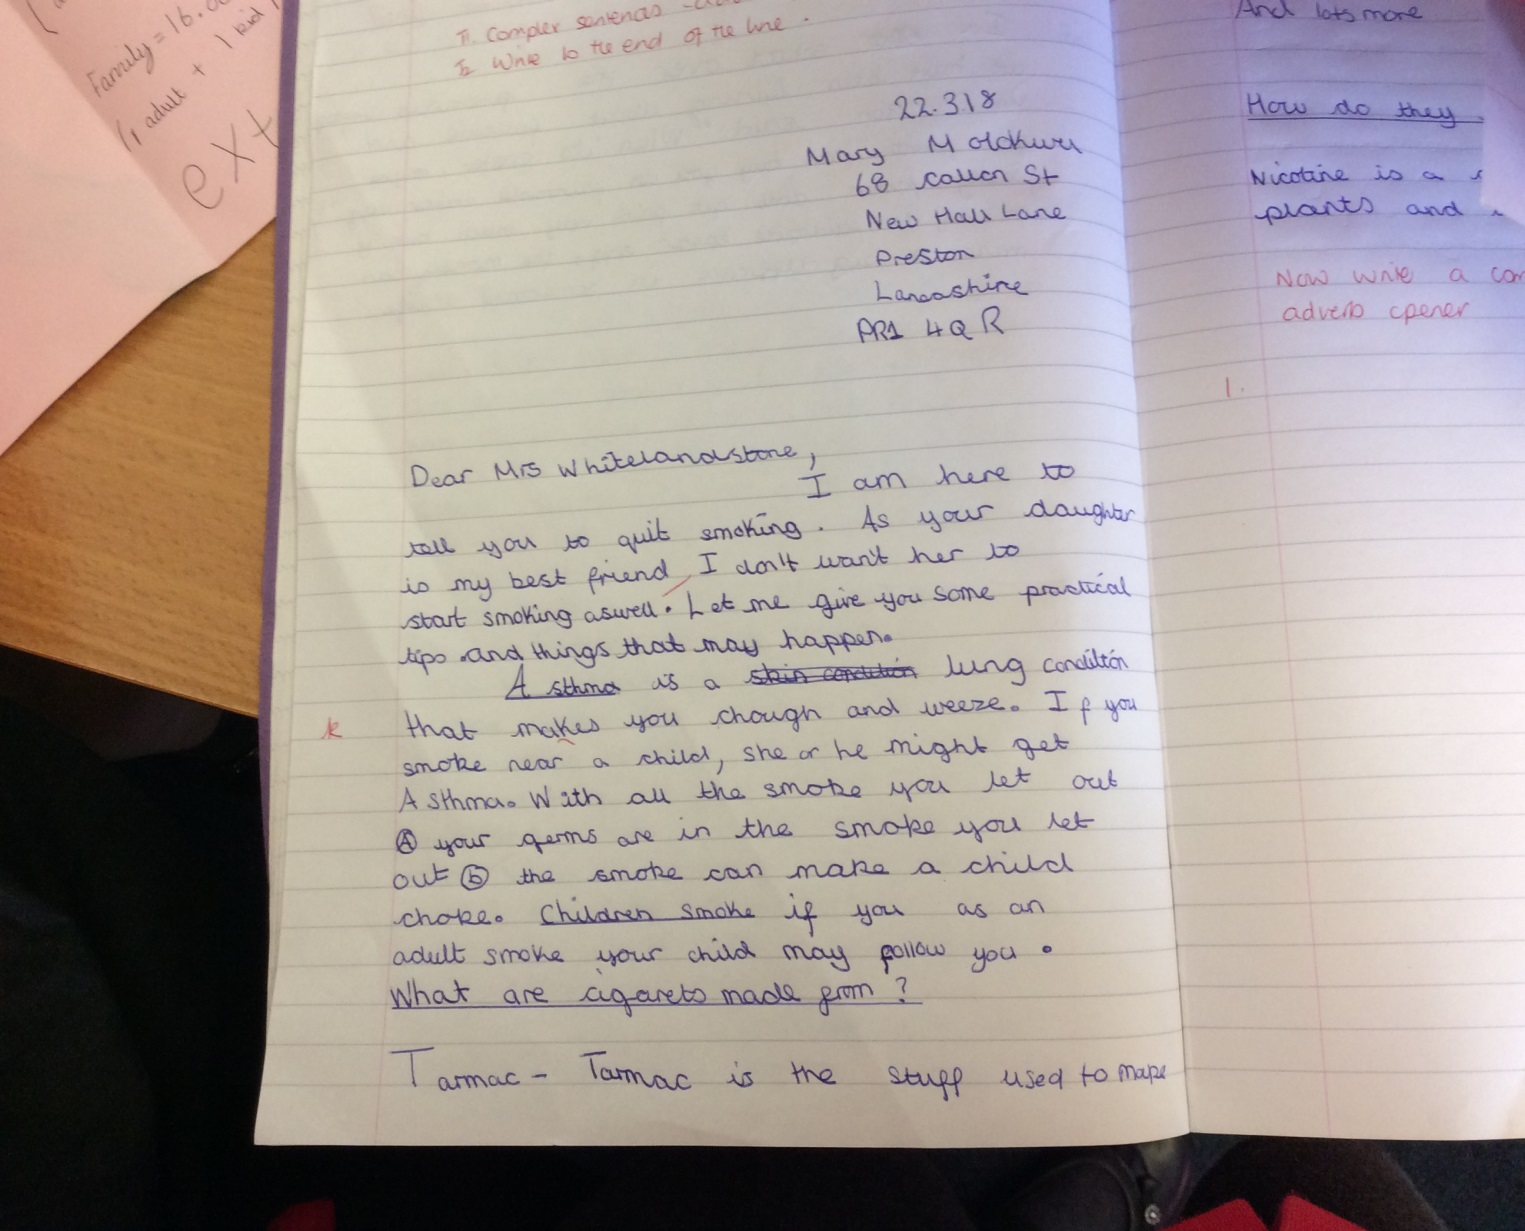 Family = 16.
(1 adult + 1 kid
ext
T1. Complex sentences
T2 Write to the end of the line.
22.318
Mary
68 St
New Hall Lane
Preston
Lancashire
PR1 4QR
Dear Mrs Whitelandstone,
I am here to
tell you to quit smoking. As your daughter
is my best friend, I don't wan't her to
start smoking aswell. Let me give you some practical
tips. and things that may happen.
Asthma is a skin condition lung condiltón
k that makes you chough and weeze. If you
smoke near a child, she or he might get
Asthma. With all the smoke you let out
Ⓐ your germs are in the smoke you let
out ⓑ the smoke can make a child
choke. Children smoke if you as an
adult smoke your child may follow you.
What are cigarets made from?
Tarmac - Tarmac is the stuff used to make
And lots more
How do they
Nicotine is a
plants and
Now write a
adverb opener
1.